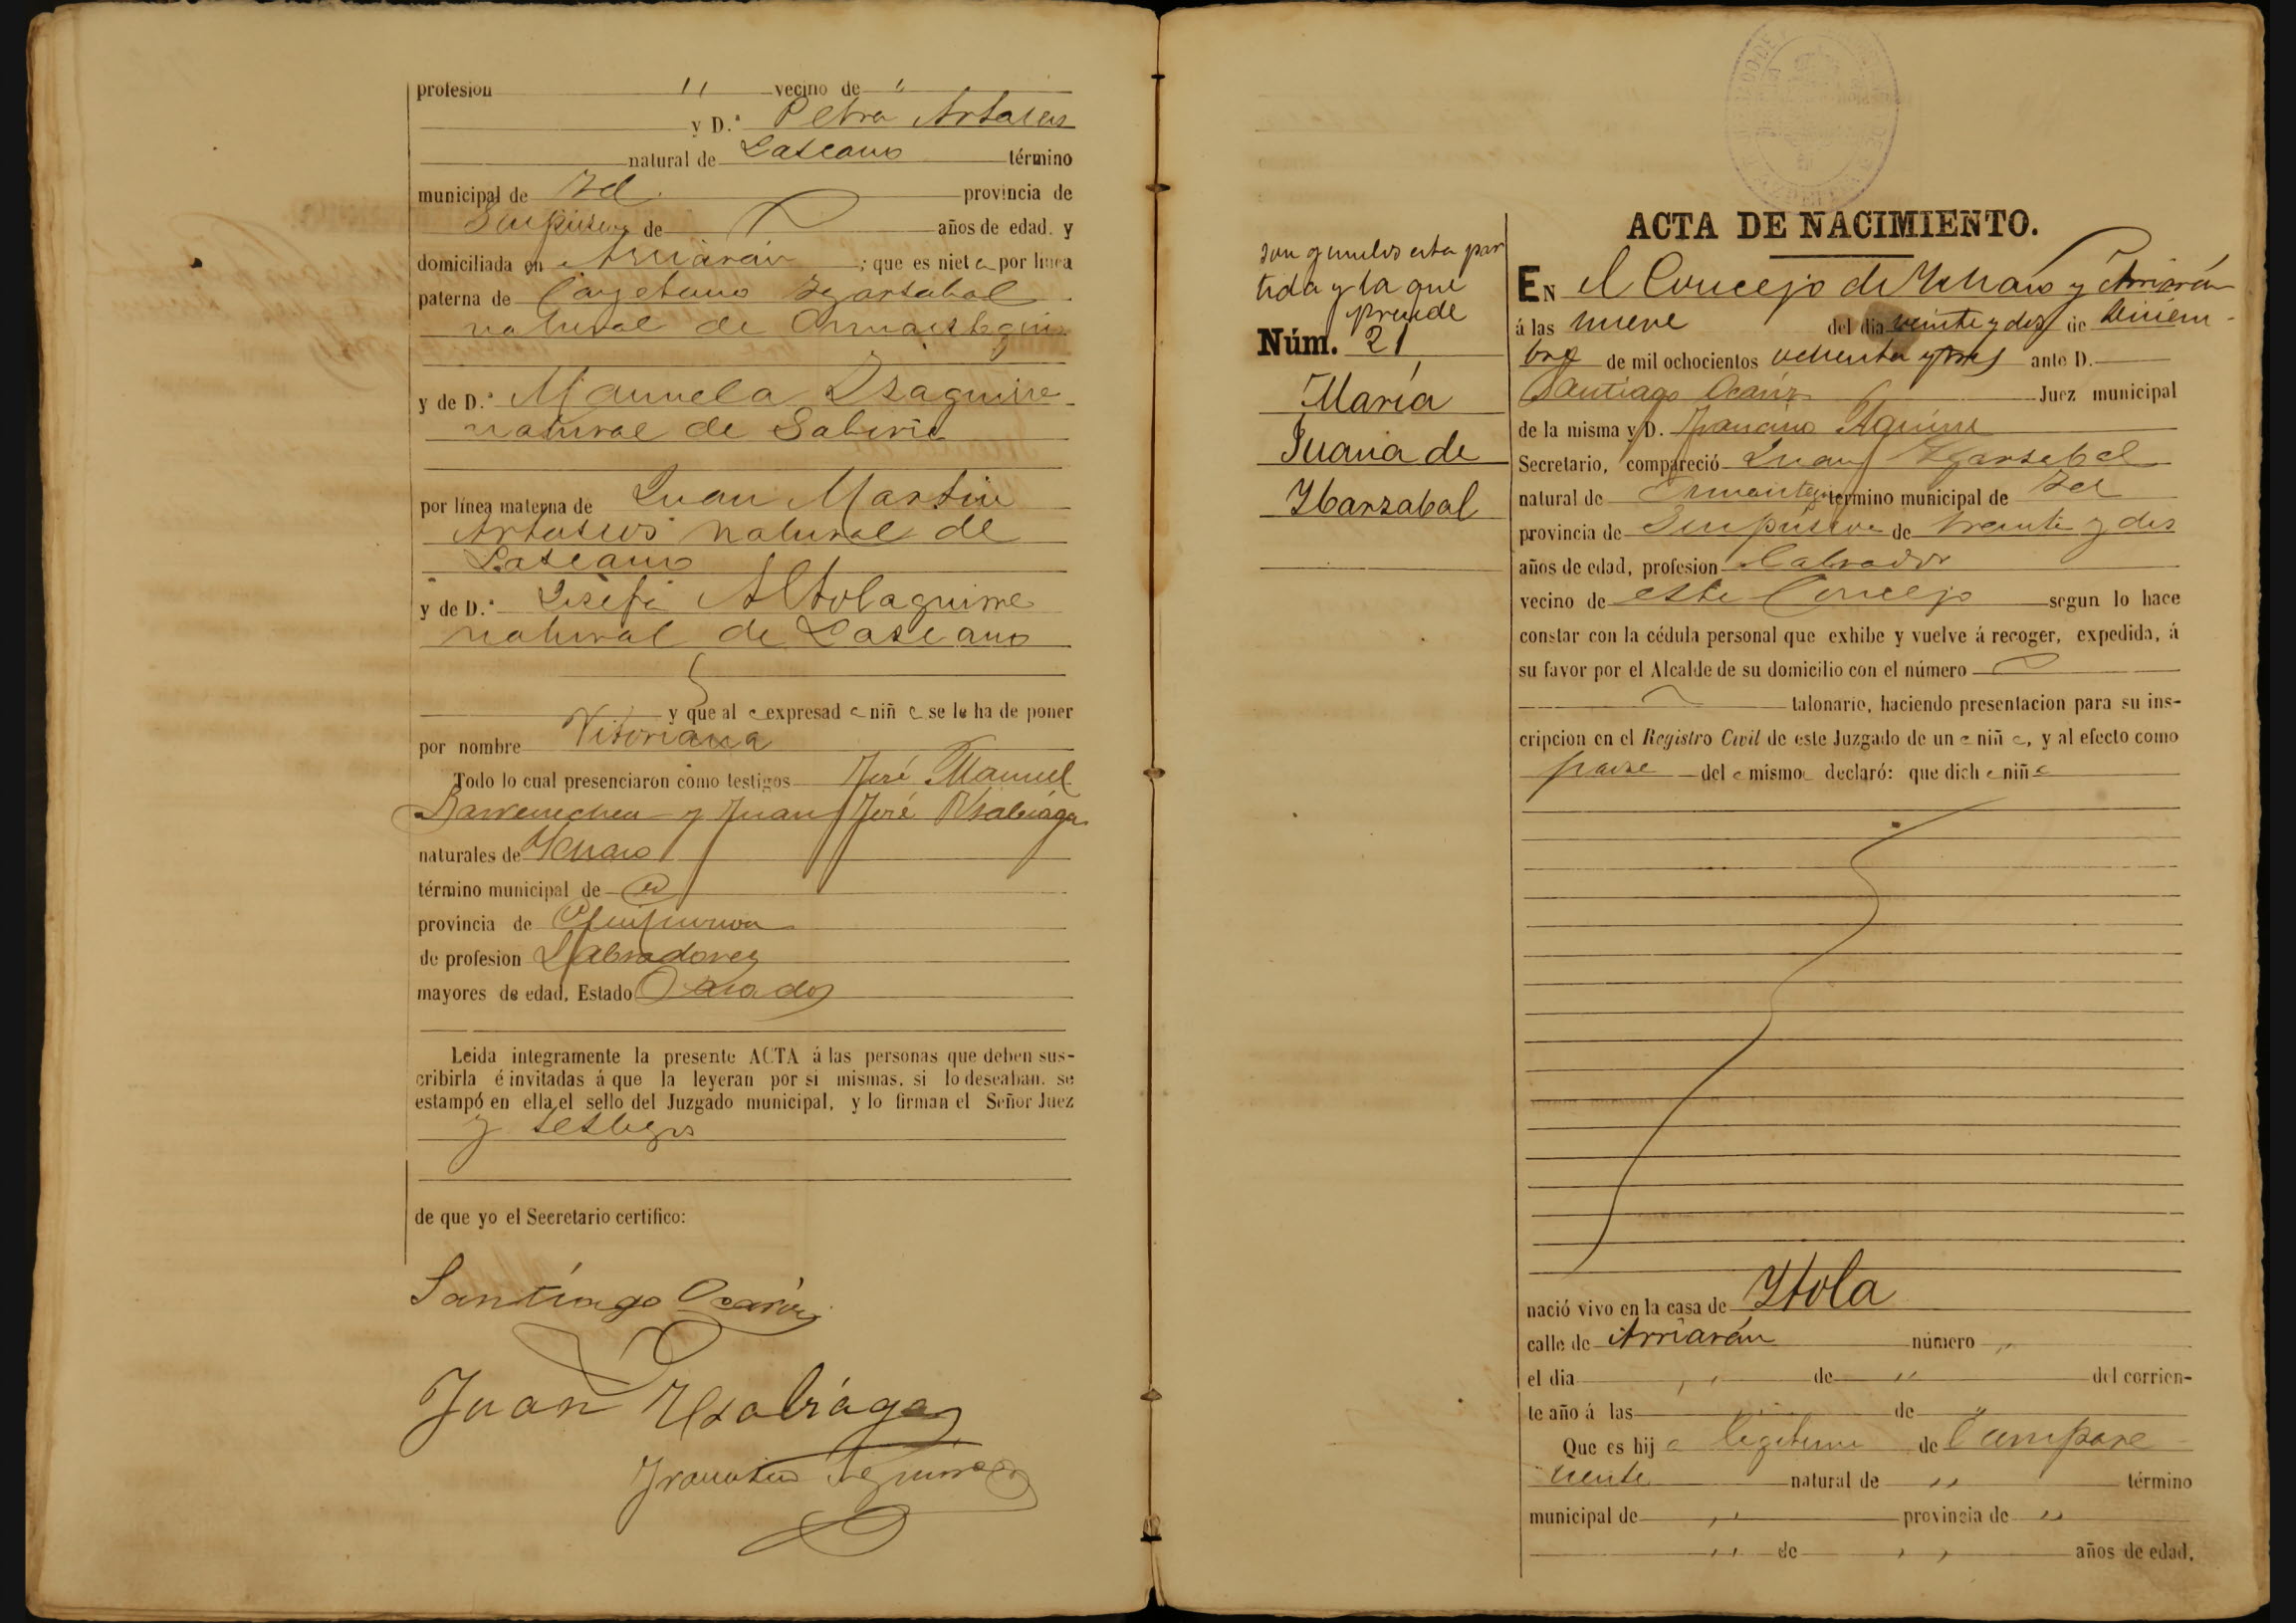 profesion " vecino de "
y D.ª Petra Artasus
natural de Lascano término
municipal de Id. provincia de
Guipúzcoa de años de edad. y
domiciliada en Arriarán ; que es niet a por línea
paterna de Cayetano Ygarzabal
natural de Ormaiztegui
y de D.ª Manuela Izaguirre
natural de Gabiria
por línea materna de Juan Martin
Artasus natural de
Lascano
y de D.ª Josefa Altolaguirre
natural de Lascano
y que al a expresad a niñ a se le ha de poner
por nombre Vitoriana
Todo lo cual presenciaron como testigos José Manuel
Barrenechea y Juan José
naturales de
término municipal de id
provincia de Guipuzcoa
de profesion Labradores
mayores de edad. Estado Casados
Leida integramente la presente ACTA á las personas que deben sus-
cribirla é invitadas á que la leyeran por si mismas. si lo deseaban. se
estampó en ella el sello del Juzgado municipal, y lo firman el Señor Juez
y testigos
de que yo el Secretario certifico:
Santiago Ocariz
Juan
Francisco Aguirre
ACTA DE NACIMIENTO.
son gemelos esta par
tida y la que
prende
Núm. 21
María
Juana de
Ybarzabal
EN el Concejo de y Arriarán
á las nueve del dia veinte y dos de Diciem-
bre de mil ochocientos ochenta y tres ante D.
Santiago Ocariz Juez municipal
de la misma y D. Francisco Aguirre
Secretario, compareció Juan Ygarzabal
natural de Ormaiztegui término municipal de Id
provincia de Guipúzcoa de treinta y dos
años de edad, profesion Labrador
vecino de este Concejo segun lo hace
constar con la cédula personal que exhibe y vuelve á recoger, expedida, á
su favor por el Alcalde de su domicilio con el número
talonario, haciendo presentacion para su ins-
cripcion en el Registro Civil de este Juzgado de un a niñ a, y al efecto como
padre del a misma declaró: que dich a niñ a
nació vivo en la casa de Ytola
calle de Arriarán número "
el dia " de " del corrien-
te año á las " de "
Que es hij a legitima de Compare
ciente natural de " término
municipal de " provincia de "
" de " años de edad,